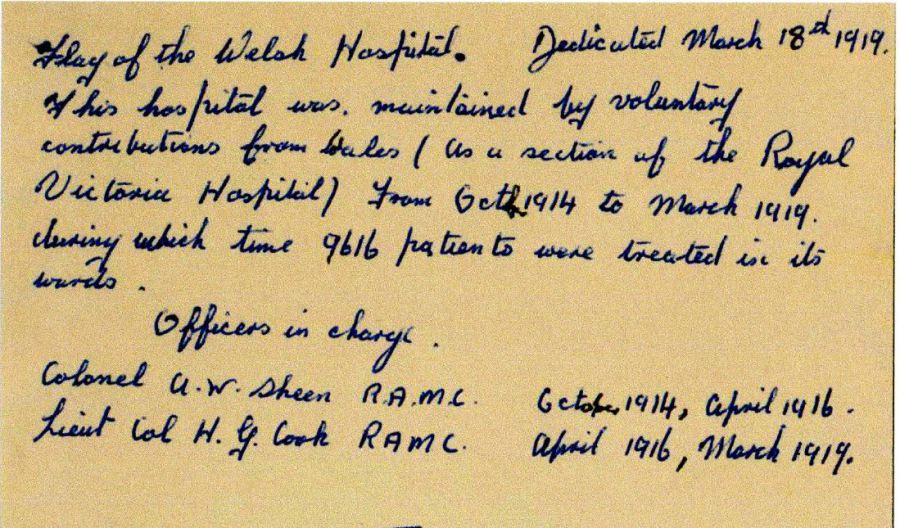 Flag of the Welsh Hospital. Dedicated March 18th 1919.
This hospital was. maintained by voluntary
contributions from Wales ( as a section of the Royal
Victoria Hospital) From Oct 1914 to March 1919.
during which time 9616 patients were treated in its
wards.
Officers in charge.
Colonel A.W. Sheen R.A.M.C. October 1914, April 1916.
Lieut Col H. G. Cook RAMC. April 1916, March 1919.